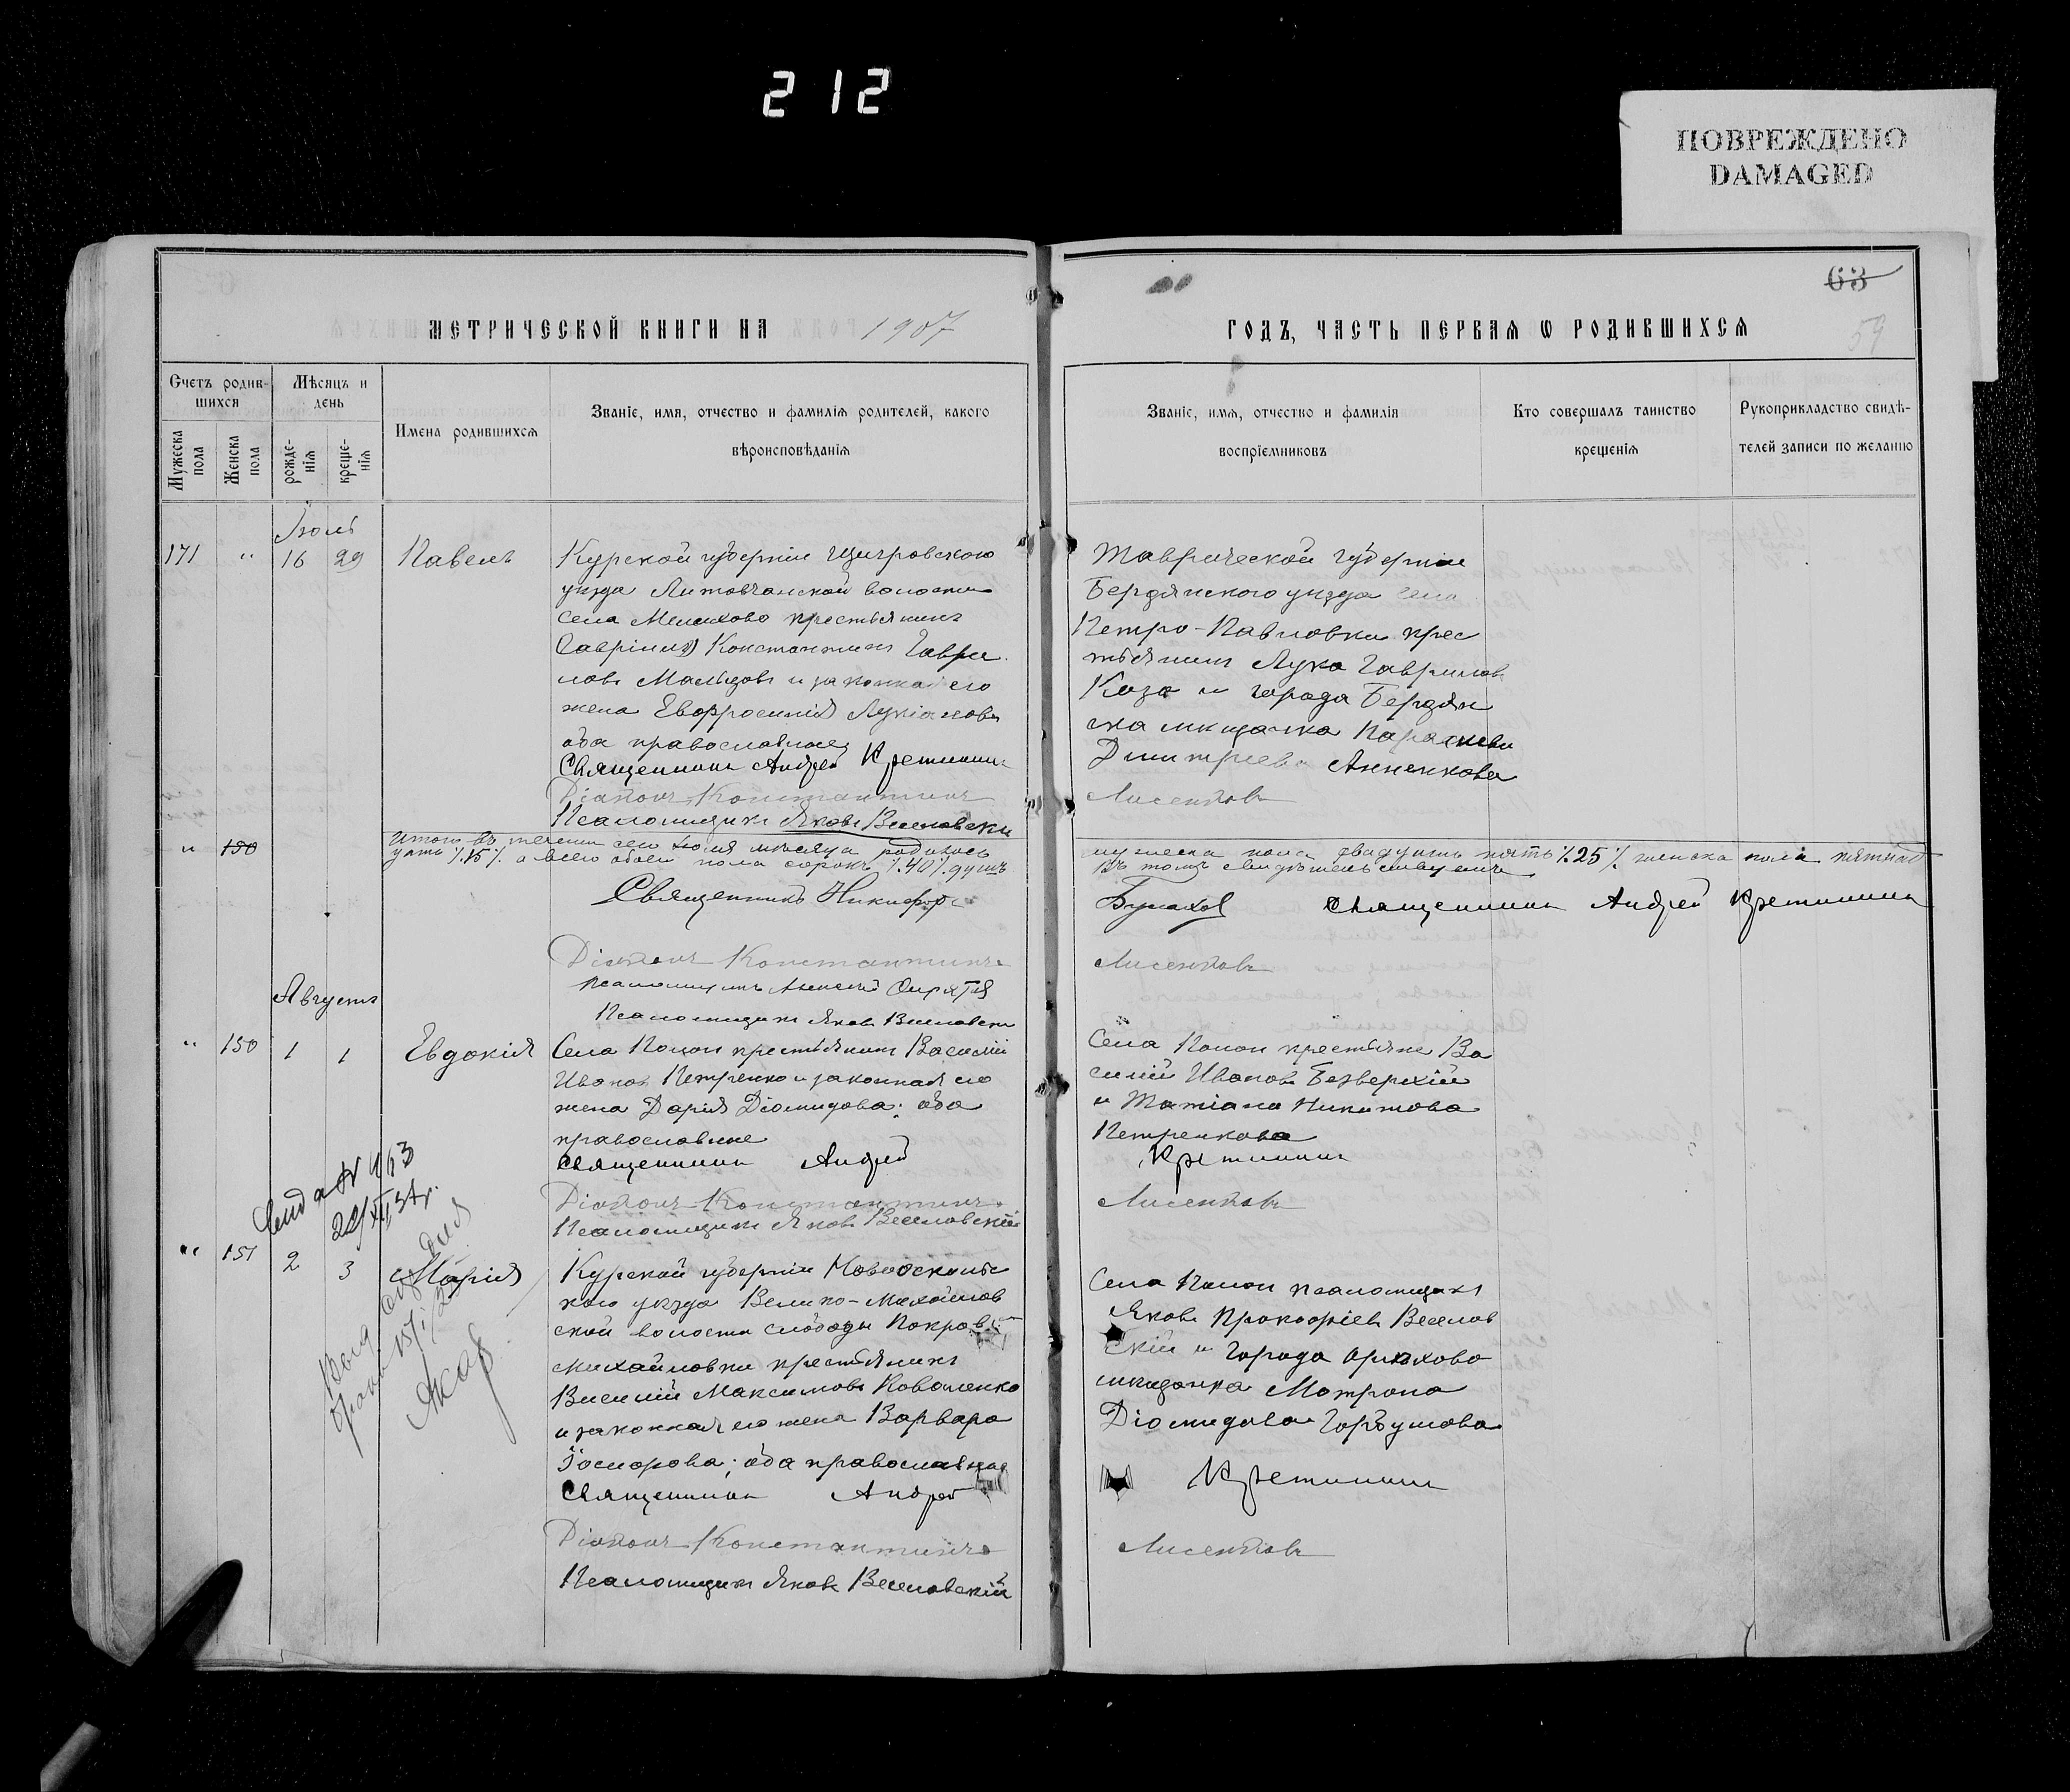 212
ПОВРЕЖДЕНО
DAMAGED
63
59
МЕТРИЧЕСКОЙ КНИГИ НА 1907
ГОДЪ, ЧАСТЬ ПЕРВАЯ Ѡ РОДИВШИХСЯ
Счетъ родив-
шихся
Мужеска
пола
Женска
пола
Мѣсяцъ и
день
рожде-
нія
креще-
нія
Имена родившихся
Званіе, имя, отчество и фамилія родителей, какого
вѣроисповѣданія
Званіе, имя, отчество и фамилія
воспріемниковъ
Кто совершалъ таинство
крещенія
Рукоприкладство свидѣ-
телей записи по желанію
Іюль
171 " 16 29 Павелъ
Курской губерніи Щигровского
уѣзда волости
села Мелихово крестьянинъ
Константинъ Гаври
ловъ Мальцовъ и законная его
жена Евфросинія Лукіанова
оба православные
Священникъ Андрей Кретининъ
Діаконъ Константинъ
Псаломщикъ Яковъ Веселовски
Таврической губерніи
Бердянского уѣзда села
Петро-Павловки крес
тьянинъ Лука Гавриловъ
Коза и города Бердян
ска мѣщанка Параскева
Димитріева Анненкова
Лисенковъ
" 150
Итого въ теченіи сего Іюля мѣсяца родилось
цать ٪15٪ а всего обоего пола сорокъ ٪40٪ душъ
мужеска пола двадцать пять ٪25٪ женска пола пятнад
Въ томъ свидѣтельствуемъ
Священникъ Никифоръ
Булахов Священникъ Андрей Кретининъ
Діаконъ Константинъ
Лисенковъ
Псаломщикъ Алексей
Псаломщикъ Яковъ Веселовски
Августъ
" 150 1 1 Евдокія
Села Попои крестьянинъ Василій
Ивановъ Петренко и законная его
жена Дарія Діомидова; оба
православные
Священникъ Андрей
Діаконъ Константинъ
Псаломщикъ Яковъ Веселовскій
Села Попои крестьяне Ва
силій Ивановъ Безверхій
и Татіана Никитова
Петренкова
Кретининъ
Лисенковъ
" 151 2 3 Марія
Курской губерніи Новооскольс
кого уѣзда Велико-Михайлов
ской волости слободы Покров
Михайловки крестьянинъ
Василій Максимовъ Коваленко
и законная его жена Варвара
оба православные
Священникъ Андрей
Діаконъ Константинъ
Псаломщикъ Яковъ Веселовскій
Села Попои псаломщикъ
Яковъ Прокофіевъ Веселов
скій и города Орѣхова
мѣщанка Матрона
Діомидова Горбунова
Кретининъ
Лисенковъ